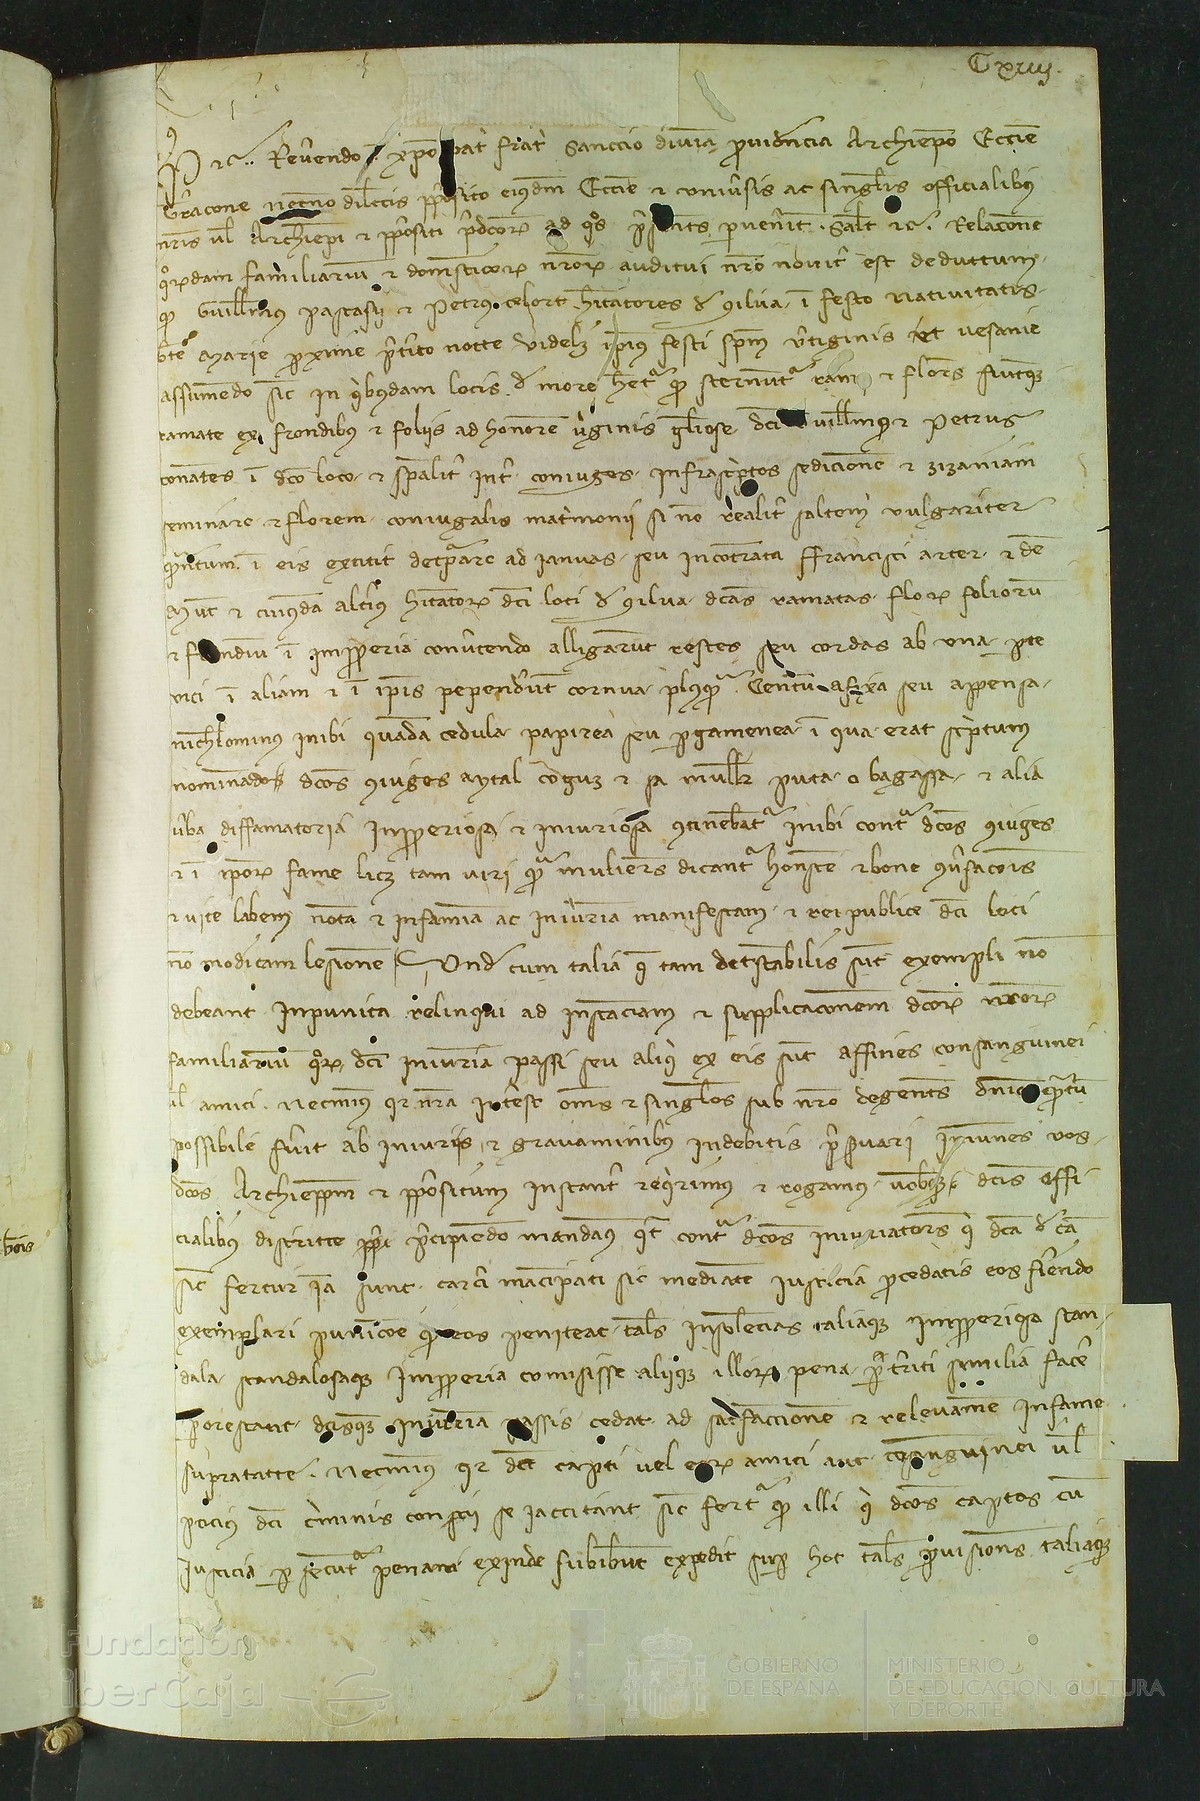 Cxiiij
P etc. Reverendo in xpo patri fratri Sanccio divina providencia Archiepo Eccie
Terracone necno dilectis pposito eiusdem Eccie et universis ac singulis officialibus
nris vel Archiepi et ppositi predcorum ad quos presentes pervenerint. Salt etc. Relacone
quorundam familiarium et domesticorum nrorum auditui nro noviter est deductum
quod Guillmus Pascasii et Petrus celort hitatores de silva in festo nativitatis
bte Marie proxime preterito nocte videlz ipius festi spm vertiginis et vesanie
assumendo sic in quibusdam locis de more hetur quod sternuntur rami et flores fiuntque
ramate ex frondibus et foliis ad honorem virginis gliose dci Guillmus et Petrus
conantes in dco loco et specialiter inter coniuges infrascriptos sedicionem et zizaniam
seminare et florem coniugalis matrimonii si no realiter saltem vulgariter
quantum in eis extitit deturpare ad ianuas seu incontrata Francisci arter et de
Munt et cuiusdam alterius hitatorum dci loci de silva dcas ramatas florum foliorum
et frondium in improperia convertendo alligarunt restes seu cordas ab una parte
vici in aliam et in ipis pependerunt cornua plusquam Centum afixa seu appensa
nichilominus inibi quadam cedula papirea seu pergamenea in qua erat scriptum
nominados dcos coniuges aytal coguz et sa muller puta o bagassa et alia
verba diffamatoria improperiosa et iniuriosa continebantur inibi contra dcos coniuges
et in ipor fame licz tam viri quam mulieres dicantur honeste et bone conversacois
et vite labem notam et infamiam ac iniuriam manifestam et rei publice dci loci
no modicam lesionem Unde cum talia que tam detestabilis sunt exempli no
debeant inpunita relinqui ad instanciam et supplicaconem dcorum nrorum
familiarium quorum dci iniuriam passi seu aliqui ex eis sunt affines consanguinei
vel amici. Necminus quia nra interest omes et singulos sub nro degentes dominio quantum
possibile fuerit ab iniuriis et gravaminibus indebitis preservari immunes vos
dcos Archiepm et ppositum instanter requirimus et rogamus vobisque dcis Offi
cialibus districte precipiendo mandamus quatenus contra dcos iniuriatores qui dca de ca
sic fertur iam sunt carceri mancipati sic mediante iusticia procedatis eos feriendo
exemplari punicoe quod eos peniteat tales insolencias taliaque improperiosa scan
dala scandalosaque improperia comisisse aliique illorum pena preteriti similia facere
perhorescant dcisque iniuriam passis cedat ad satisfaccionem et relevamen infamie
supratacte. Necminus quia dci capti vel eorum amici aut consanguinei vel
pocius dci criminis conscii se iaccitant sic fertur quod illi qui dcos captos cum
iusticia persecuntur penam exinde subibunt expedit super hoc tales provisiones taliaque